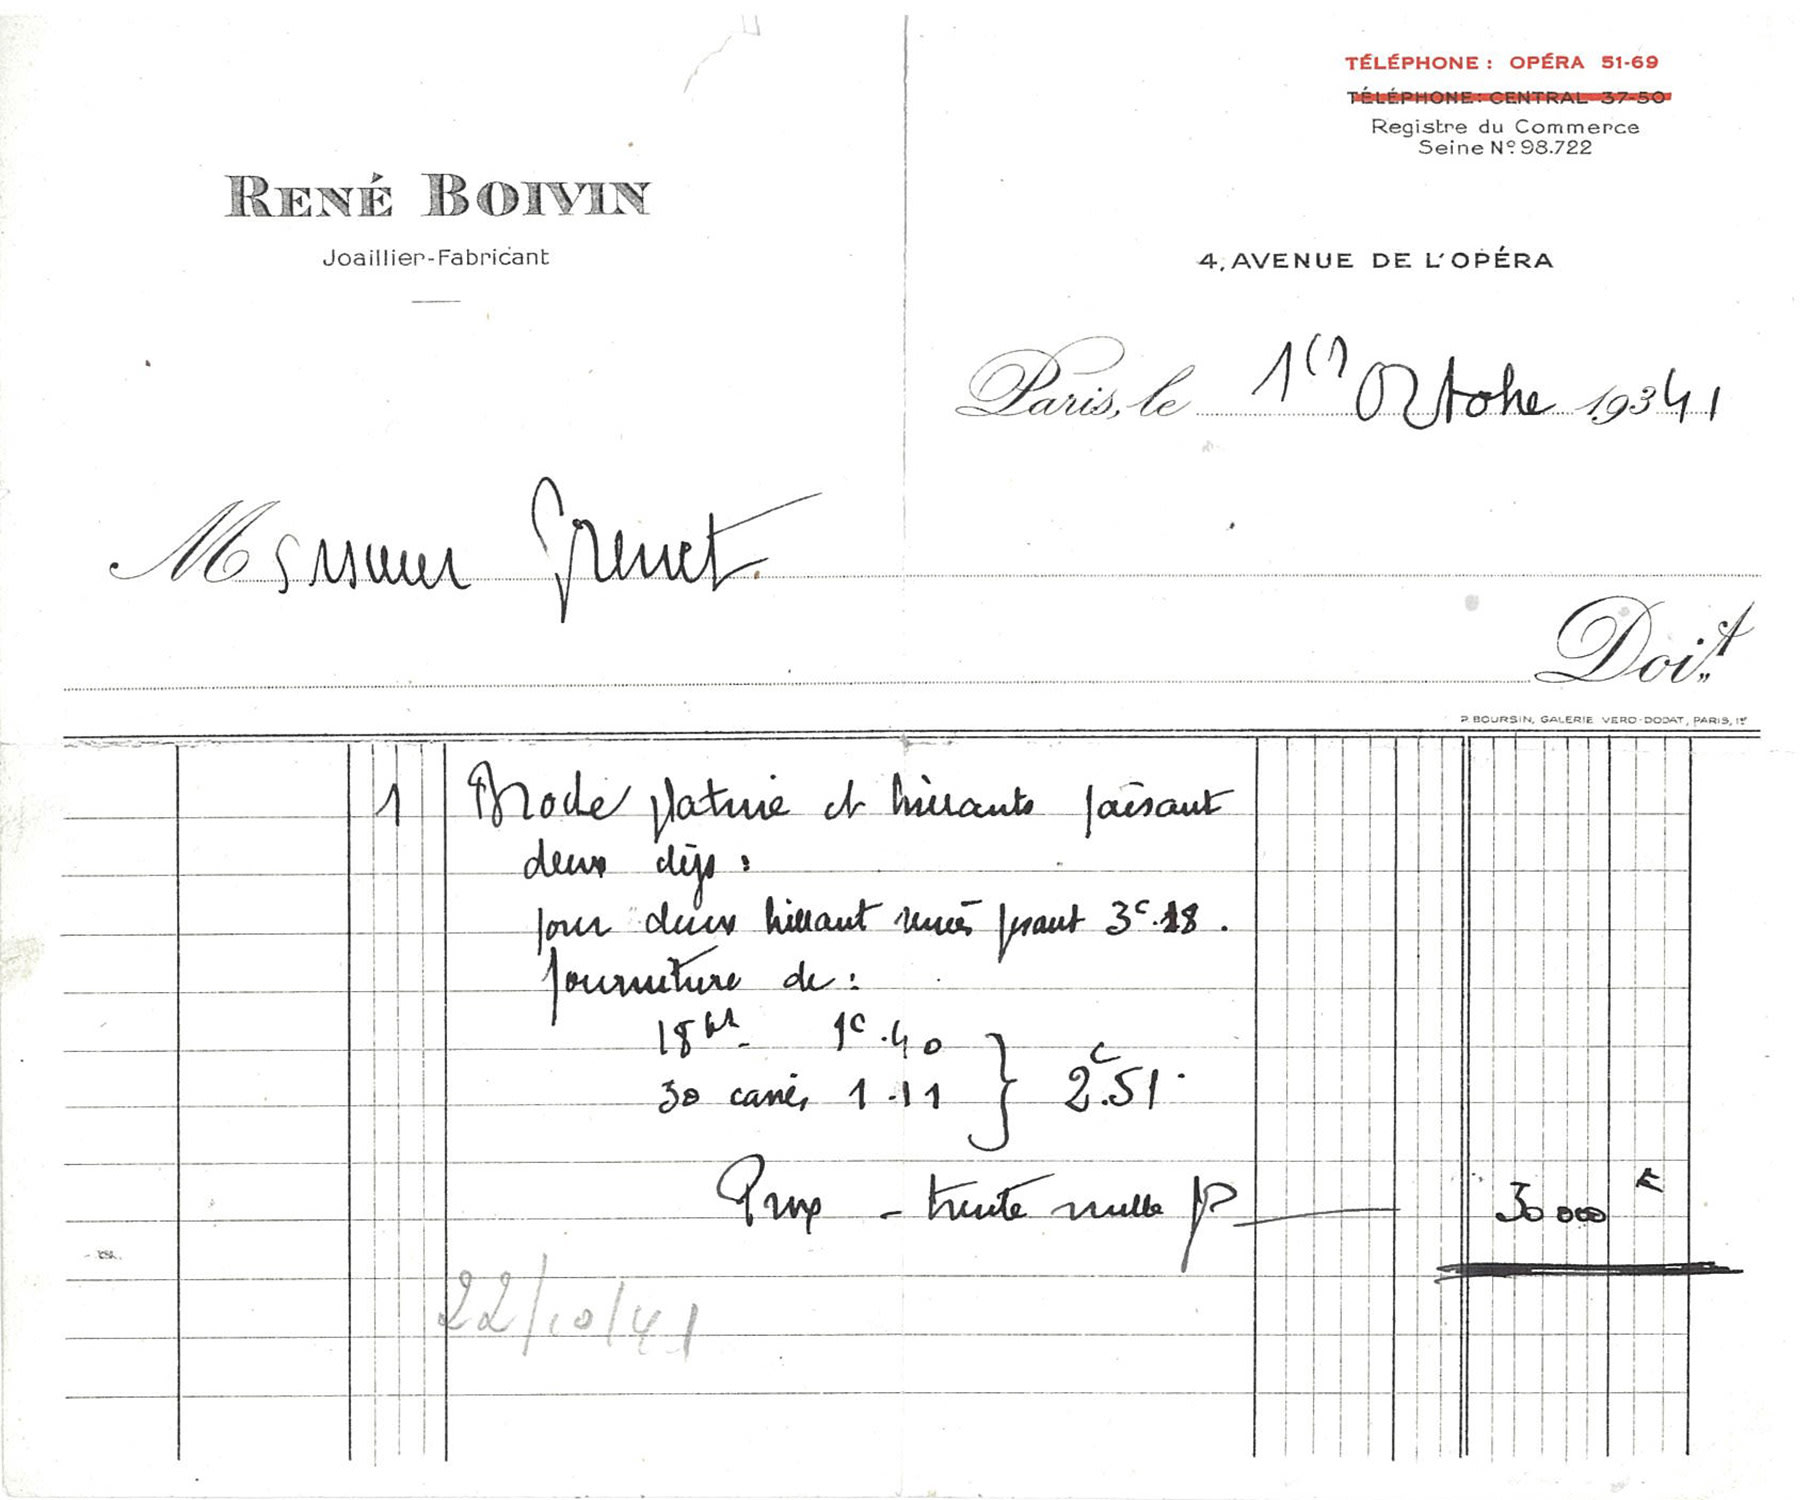 TÉLÉPHONE : OPÉRA 51-69
TÉLÉPHONE : CENTRAL 37-50
Registre du Commerce
Seine Nº 98.722
RENÉ BOIVIN
Joaillier-Fabricant
4, AVENUE DE L'OPÉRA
Paris, le 1er Octobre 19341
Monsieur Grenet
Doit
P. BOURSIN, GALERIE VERO-DODAT, PARIS, 1er
1 Broche platine et brillants faisant
deux clips :
pour deux brillant pesant 3c.18.
fourniture de :
18 bts - 1c.40
30 carrés 1.11 } 2c.51.
Prix - trente mille f 30000 F
22/10/41